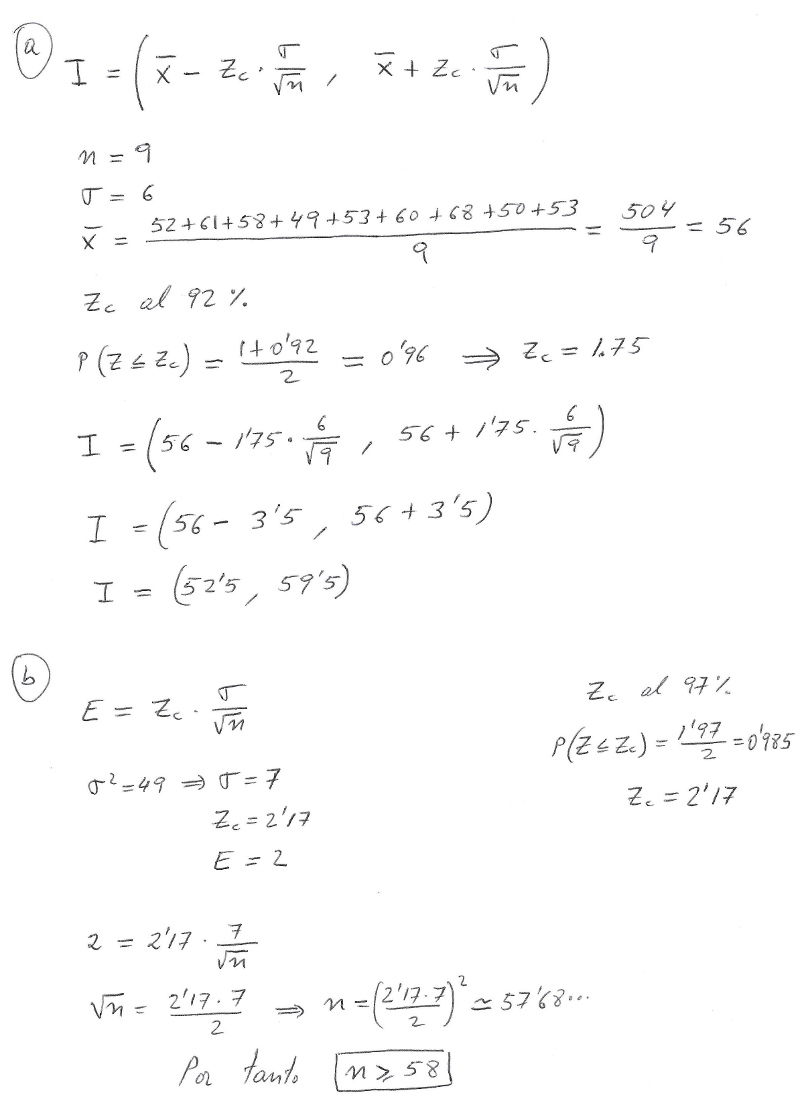 a
I = (x̄ - Zc · σ/√n , x̄ + Zc · σ/√n)
n = 9
σ = 6
x̄ = (52+61+58+49+53+60+68+50+53)/9 = 504/9 = 56
Zc al 92 %.
P(Z ≤ Zc) = (1+0'92)/2 = 0'96 ⟹ Zc = 1.75
I = (56 - 1'75 · 6/√9 , 56 + 1'75 · 6/√9)
I = (56 - 3'5 , 56 + 3'5)
I = (52'5 , 59'5)
b
E = Zc · σ/√n
σ² = 49 ⟹ σ = 7
Zc = 2'17
E = 2
Zc al 97 %
P(Z ≤ Zc) = 1'97/2 = 0'985
Zc = 2'17
2 = 2'17 · 7/√n
√n = (2'17 · 7)/2 ⟹ n = ((2'17 · 7)/2)² ≃ 57'68...
Por tanto n ⩾ 58